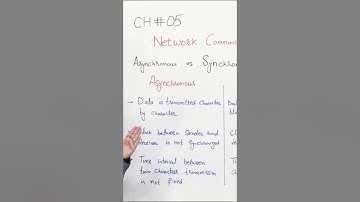 CH#05
Network Commu
Asynchronous vs Synchron
Asynchronous
→ Data is transmitted character
by character
Clock between Sender and
Receiver is not Synchronized
→ Time interval between
two characters transmission
is not fixed